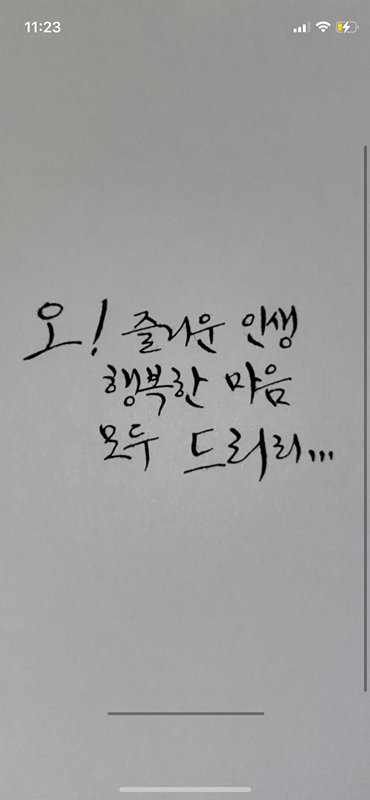 11:23
오! 즐거운 인생
행복한 마음
모두 드리리...